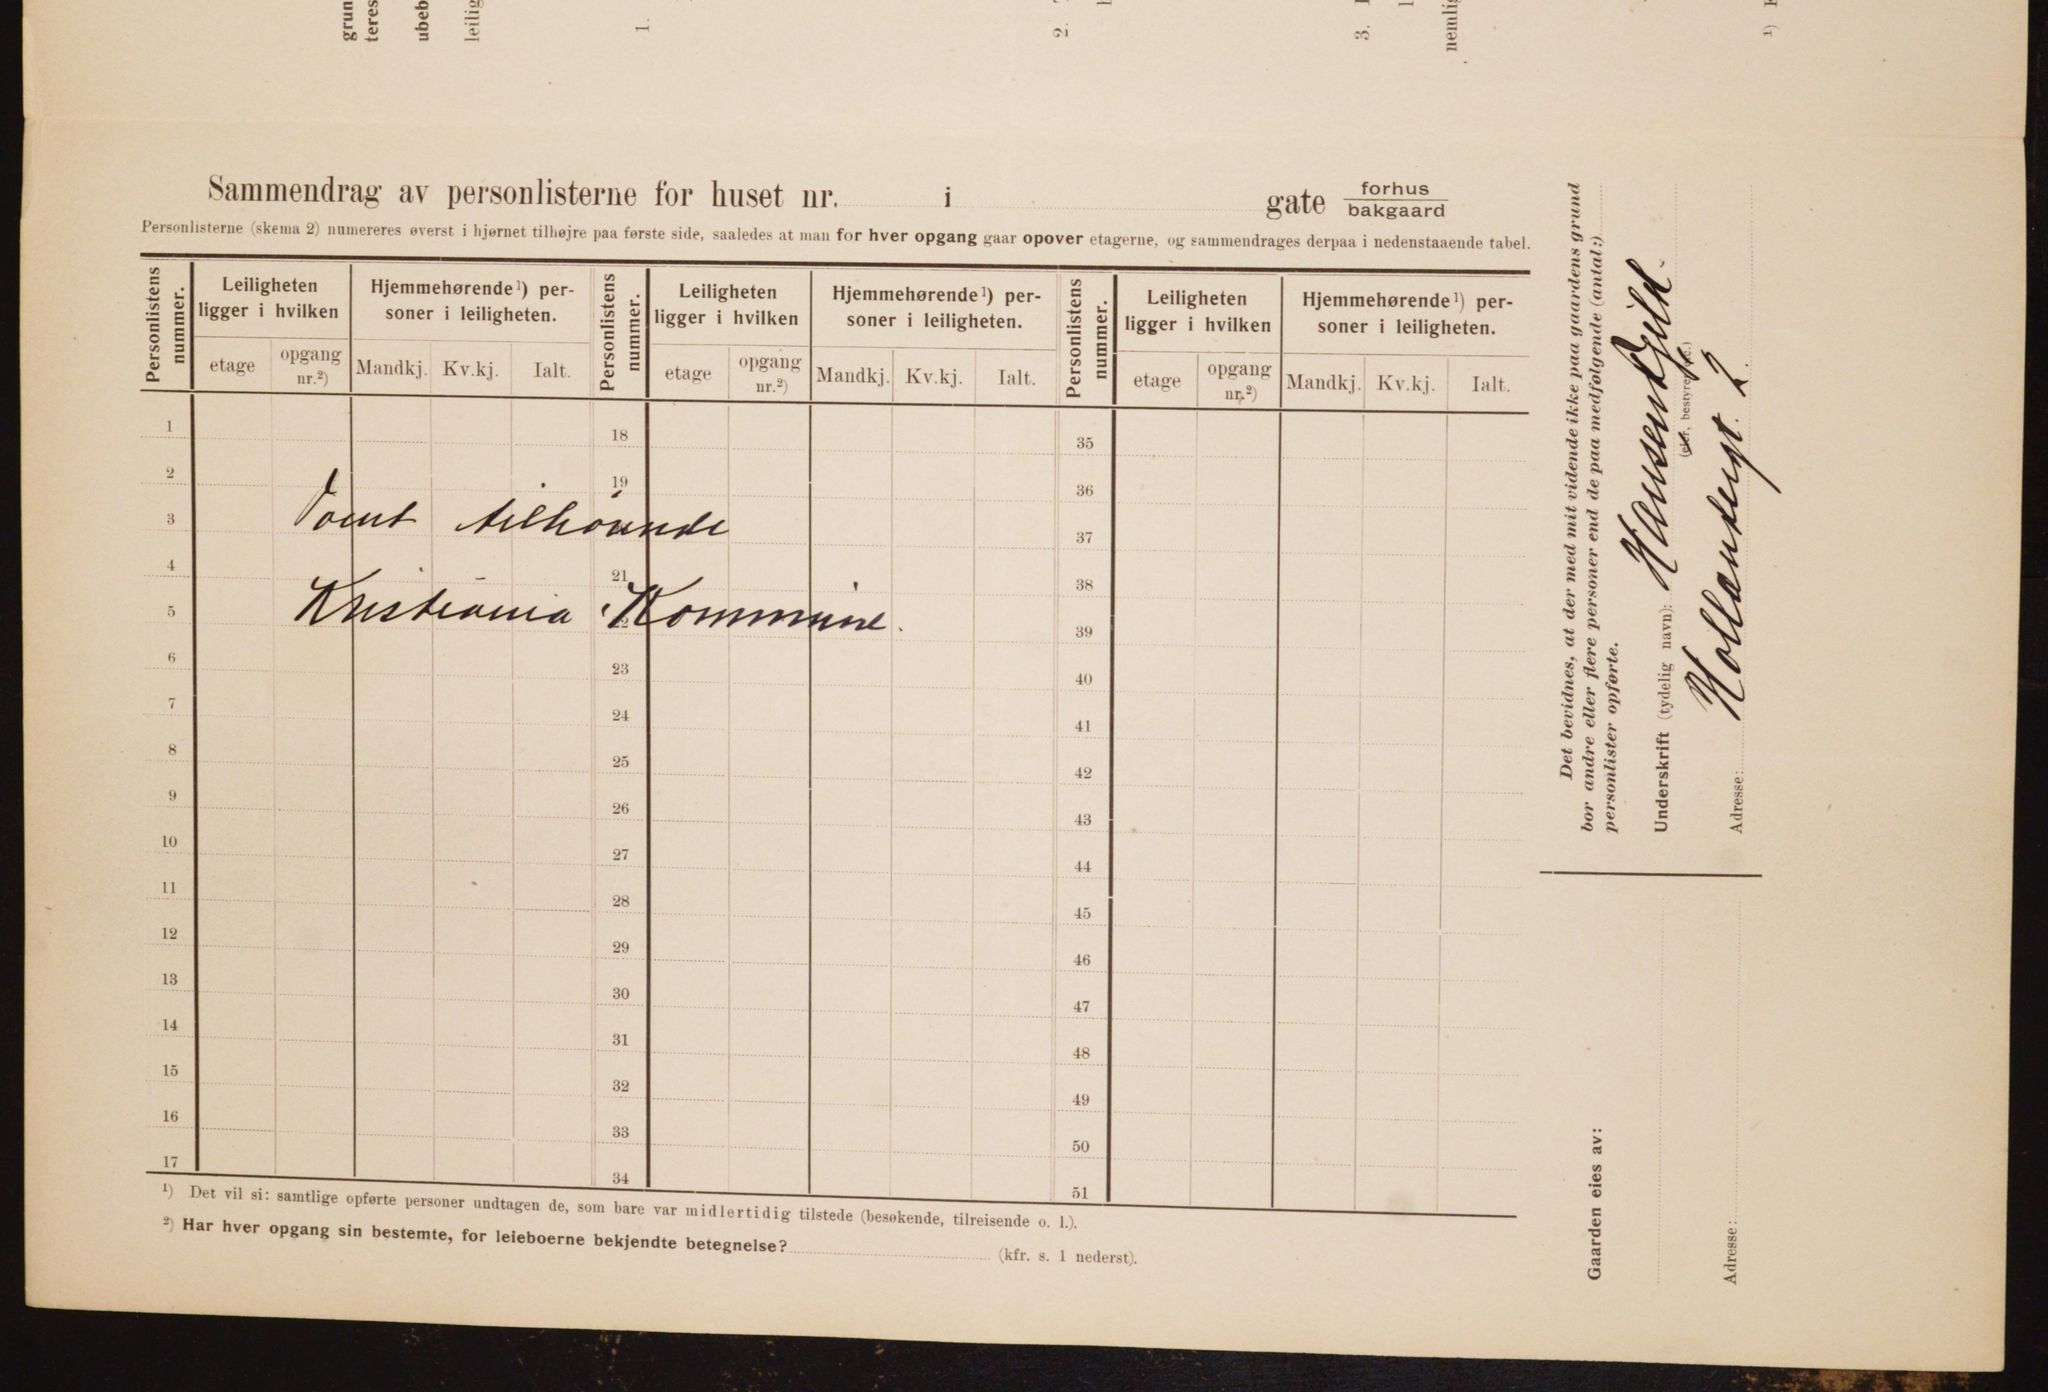 grun
teres
ubeb
leilig
1.
2.
3.
nemlig
1)
Sammendrag av personlisterne for huset nr. i gate forhus
bakgaard
Personlisterne (skema 2) numereres øverst i hjørnet tilhøjre paa første side, saaledes at man for hver opgang gaar opover etagerne, og sammendrages derpaa i nedenstaaende tabel.
Personlistens nummer. Leiligheten ligger i hvilken Hjemmehørende¹) personer i leiligheten. Personlistens nummer. Leiligheten ligger i hvilken Hjemmehørende¹) personer i leiligheten. Personlistens nummer. Leiligheten ligger i hvilken Hjemmehørende¹) personer i leiligheten.
etage opgang nr.²) Mandkj. Kv.kj. Ialt. etage opgang nr.²) Mandkj. Kv.kj. Ialt. etage opgang nr.²) Mandkj. Kv.kj. Ialt.
1 18 35
2 19 36
3 37
tilhørende
4 21 38
5 39
Kristiania Kommune.
6 23 40
7 24 41
8 25 42
9 26 43
10 27 44
11 28 45
12 29 46
13 30 47
14 31 48
15 32 49
16 33 50
17 34 51
¹) Det vil si: samtlige opførte personer undtagen de, som bare var midlertidig tilstede (besøkende, tilreisende o. l.).
²) Har hver opgang sin bestemte, for leieboerne bekjendte betegnelse? (kfr. s. 1 nederst).
Det bevidnes, at der med mit vidende ikke paa gaardens grund
bor andre eller flere personer end de paa medfølgende (antal:)
personlister opførte.
Underskrift (tydelig navn):
(eier, bestyrer etc.)
Adresse: 2.
Gaarden eies av:
Adresse: